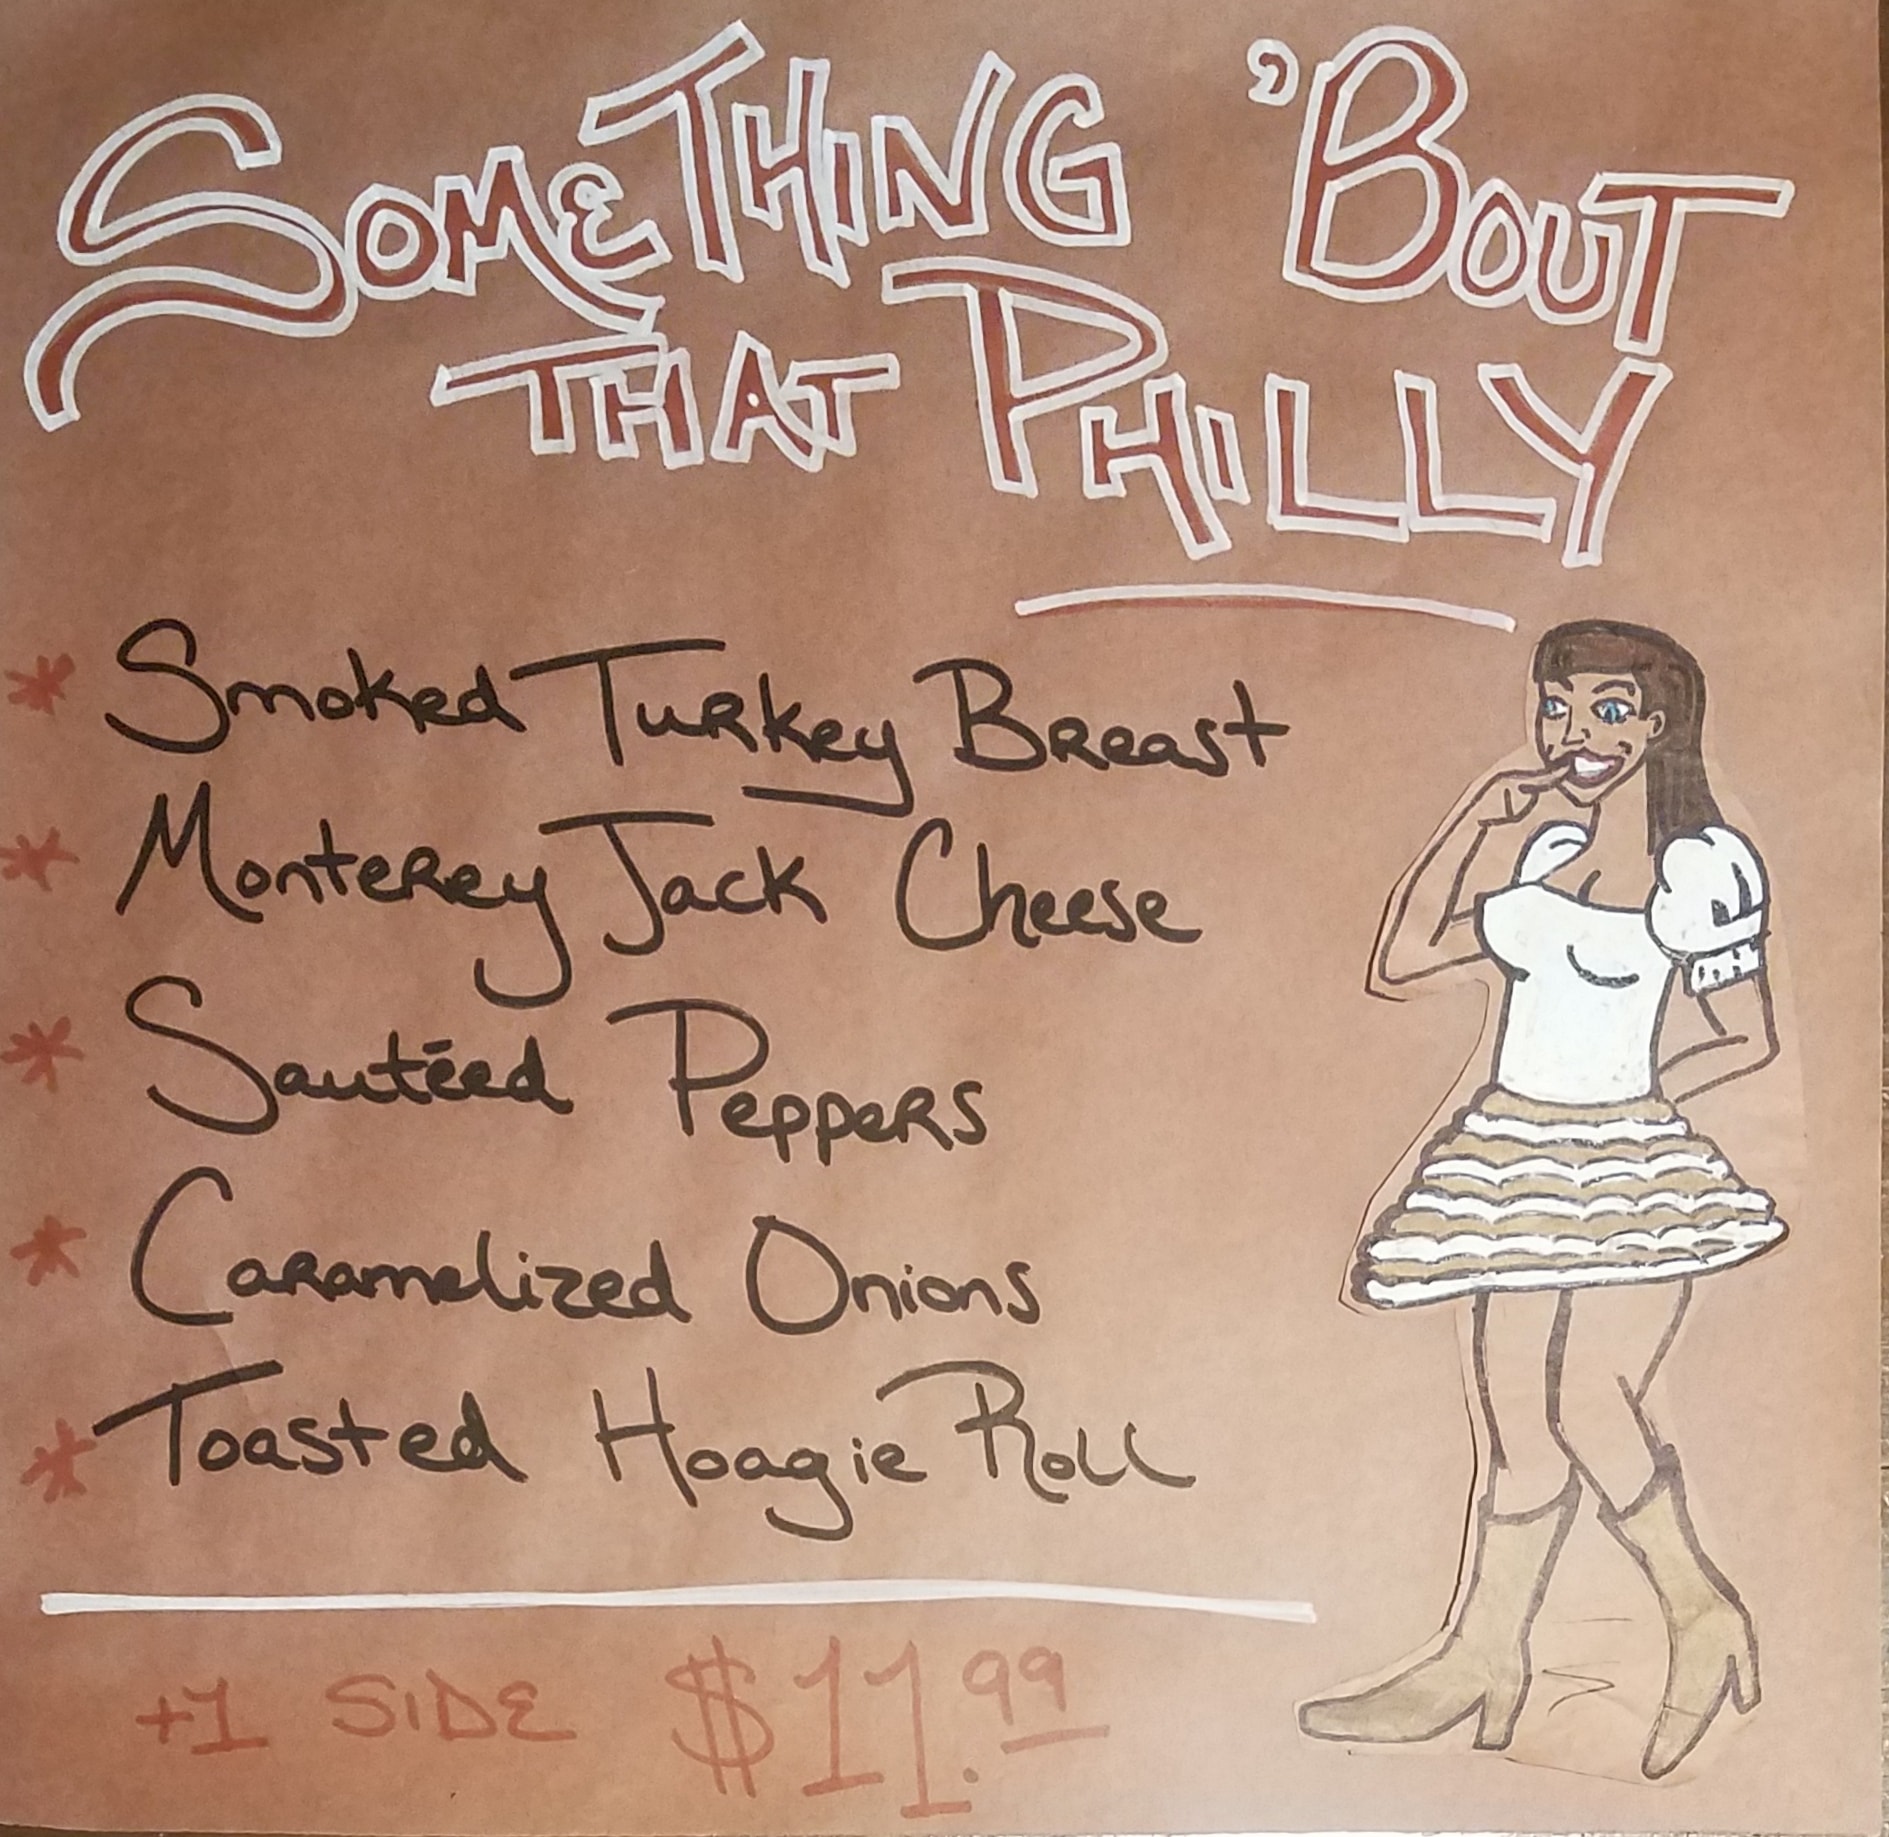 SOMETHING 'BOUT
THAT PHILLY
* Smoked Turkey Breast
* Monterey Jack Cheese
* Sautéed Peppers
* Caramelized Onions
* Toasted Hoagie Roll
+1 SIDE $11.99